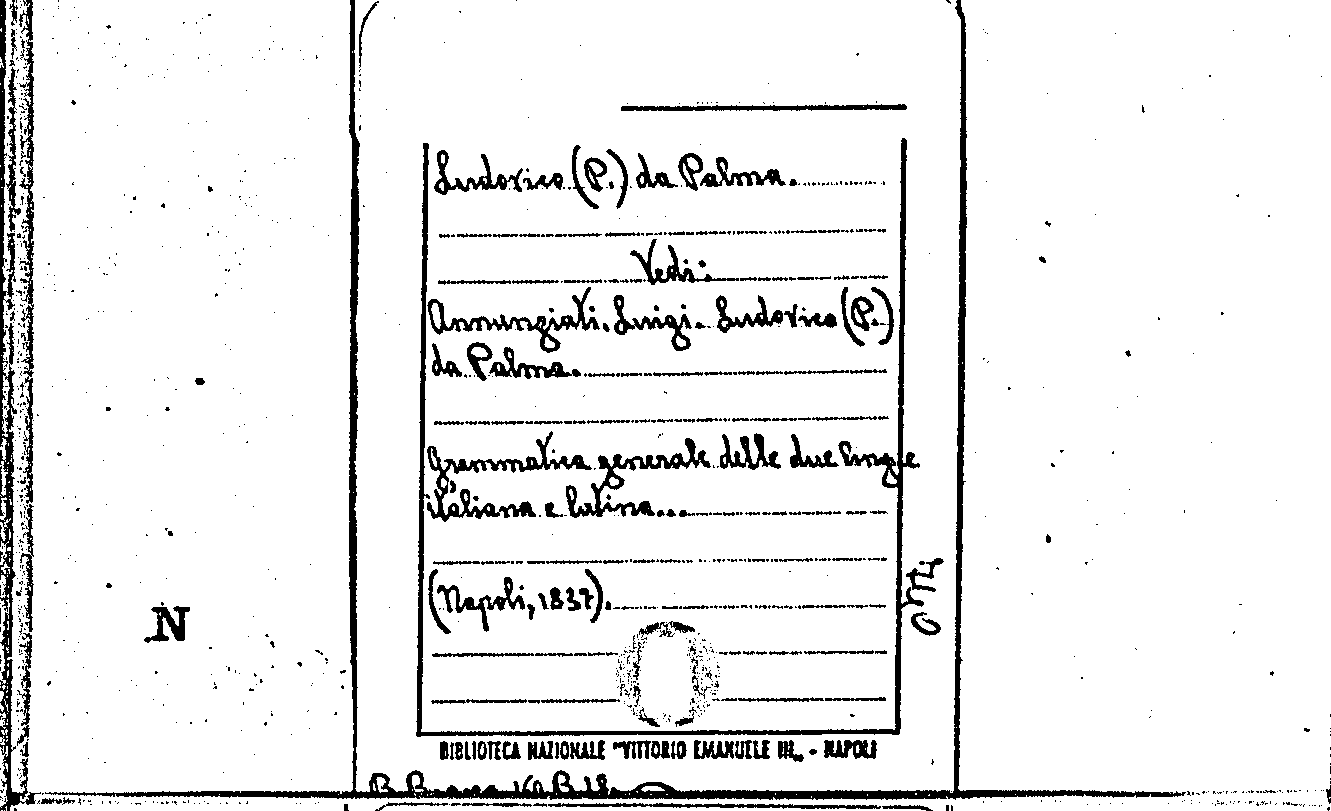 Ludovico (P.) da Palma.
Vedi:
Annunziati. Luigi. Ludovico (P.)
da Palma.
Grammatica generale delle due lingue
italiana e latina...
(Napoli, 1837).
N
BIBLIOTECA NAZIONALE "VITTORIO EMANUELE III„ - NAPOLI